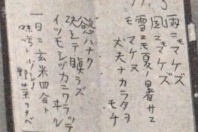 雨ニモマケズ
風ニモマケズ
雪ニモ夏ノ暑サニ
モマケヌ
丈夫ナカラダヲ
モチ
慾ハナク
決シテ瞋ラズ
イツモシヅカニワラッテ
一日ニ玄米四合ト
味噌ト少シノ野菜ヲタベ